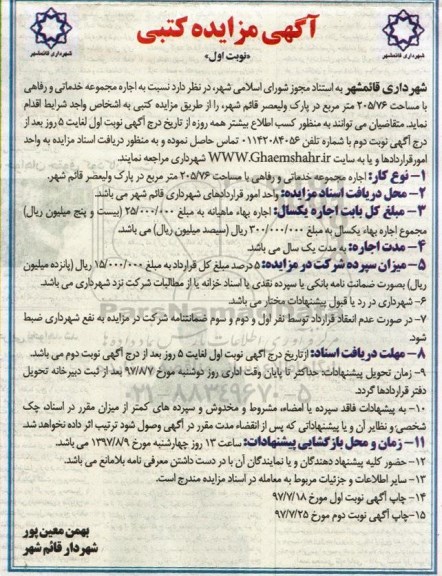 آگهی مزایده کتبی
«نوبت اول»
شهرداری قائمشهر
شهرداری قائمشهر
شهرداری قائمشهر به استناد مجوز شورای اسلامی شهر، در نظر دارد نسبت به اجاره مجموعه خدماتی و رفاهی
با مساحت ۲۰۵/۷۶ متر مربع در پارک ولیعصر قائم شهر، را از طریق مزایده کتبی به اشخاص واجد شرایط اقدام
نماید. متقاضیان می توانند به منظور کسب اطلاع بیشتر همه روزه از تاریخ درج آگهی نوبت اول لغایت ۵ روز بعد از
درج آگهی نوبت دوم با شماره تلفن ۰۱۱۴۲۰۸۴۰۵۶ تماس حاصل نموده و به منظور دریافت اسناد مزایده به واحد
امور قراردادها و یا به سایت WWW.Ghaemshahr.ir شهرداری مراجعه نمایند.
۱- نوع کار: اجاره مجموعه خدماتی و رفاهی با مساحت ۲۰۵/۷۶ متر مربع در پارک ولیعصر قائم شهر.
۲- محل دریافت اسناد مزایده: واحد امور قراردادهای شهرداری قائم شهر می باشد.
۳- مبلغ کل بابت اجاره یکسال: اجاره بهاء ماهیانه به مبلغ ۲۵/۰۰۰/۰۰۰ ریال (بیست و پنج میلیون ریال)
مجموع اجاره بهاء یکسال به مبلغ ۳۰۰/۰۰۰/۰۰۰ ریال (سیصد میلیون ریال) می باشد.
۴- مدت اجاره: به مدت یک سال می باشد.
۵- میزان سپرده شرکت در مزایده: ۵ درصد مبلغ کل قرارداد به مبلغ ۱۵/۰۰۰/۰۰۰ ریال (پانزده میلیون
ریال) بصورت ضمانت نامه بانکی یا سپرده نقدی یا اسناد خزانه یا از مطالبات شرکت نزد شهرداری می باشد.
۶- شهرداری در رد یا قبول پیشنهادات مختار می باشد.
۷- در صورت عدم انعقاد قرارداد توسط نفر اول و دوم و سوم ضمانتنامه شرکت در مزایده به نفع شهرداری ضبط
شود.
۸- مهلت دریافت اسناد: از تاریخ درج آگهی نوبت اول لغایت ۵ روز بعد از درج آگهی نوبت دوم می باشد.
۹- زمان تحویل پیشنهادات: حداکثر تا پایان وقت اداری روز دوشنبه مورخ ۹۷/۸/۷ بعد از ثبت دبیرخانه تحویل
دفتر قراردادها گردد.
۱۰- به پیشنهادات فاقد سپرده یا امضاء، مشروط و مخدوش و سپرده های کمتر از میزان مقرر در اسناد، چک
شخصی و نظایر آن و یا پیشنهاداتی که پس از انقضاء مدت مقرر در آگهی وصول شود ترتیب اثر داده نخواهد شد.
۱۱- زمان و محل بازگشایی پیشنهادات: ساعت ۱۳ روز چهارشنبه مورخ ۱۳۹۷/۸/۹ می باشد.
۱۲- حضور کلیه پیشنهاد دهندگان و یا نمایندگان آن با در دست داشتن معرفی نامه بلامانع می باشد.
۱۳- سایر اطلاعات و جزئیات مربوط به معامله در اسناد مزایده مندرج است.
۱۴- چاپ آگهی نوبت اول مورخ ۹۷/۷/۱۸
۱۵- چاپ آگهی نوبت دوم مورخ ۹۷/۷/۲۵
بهمن معین پور
شهردار قائم شهر